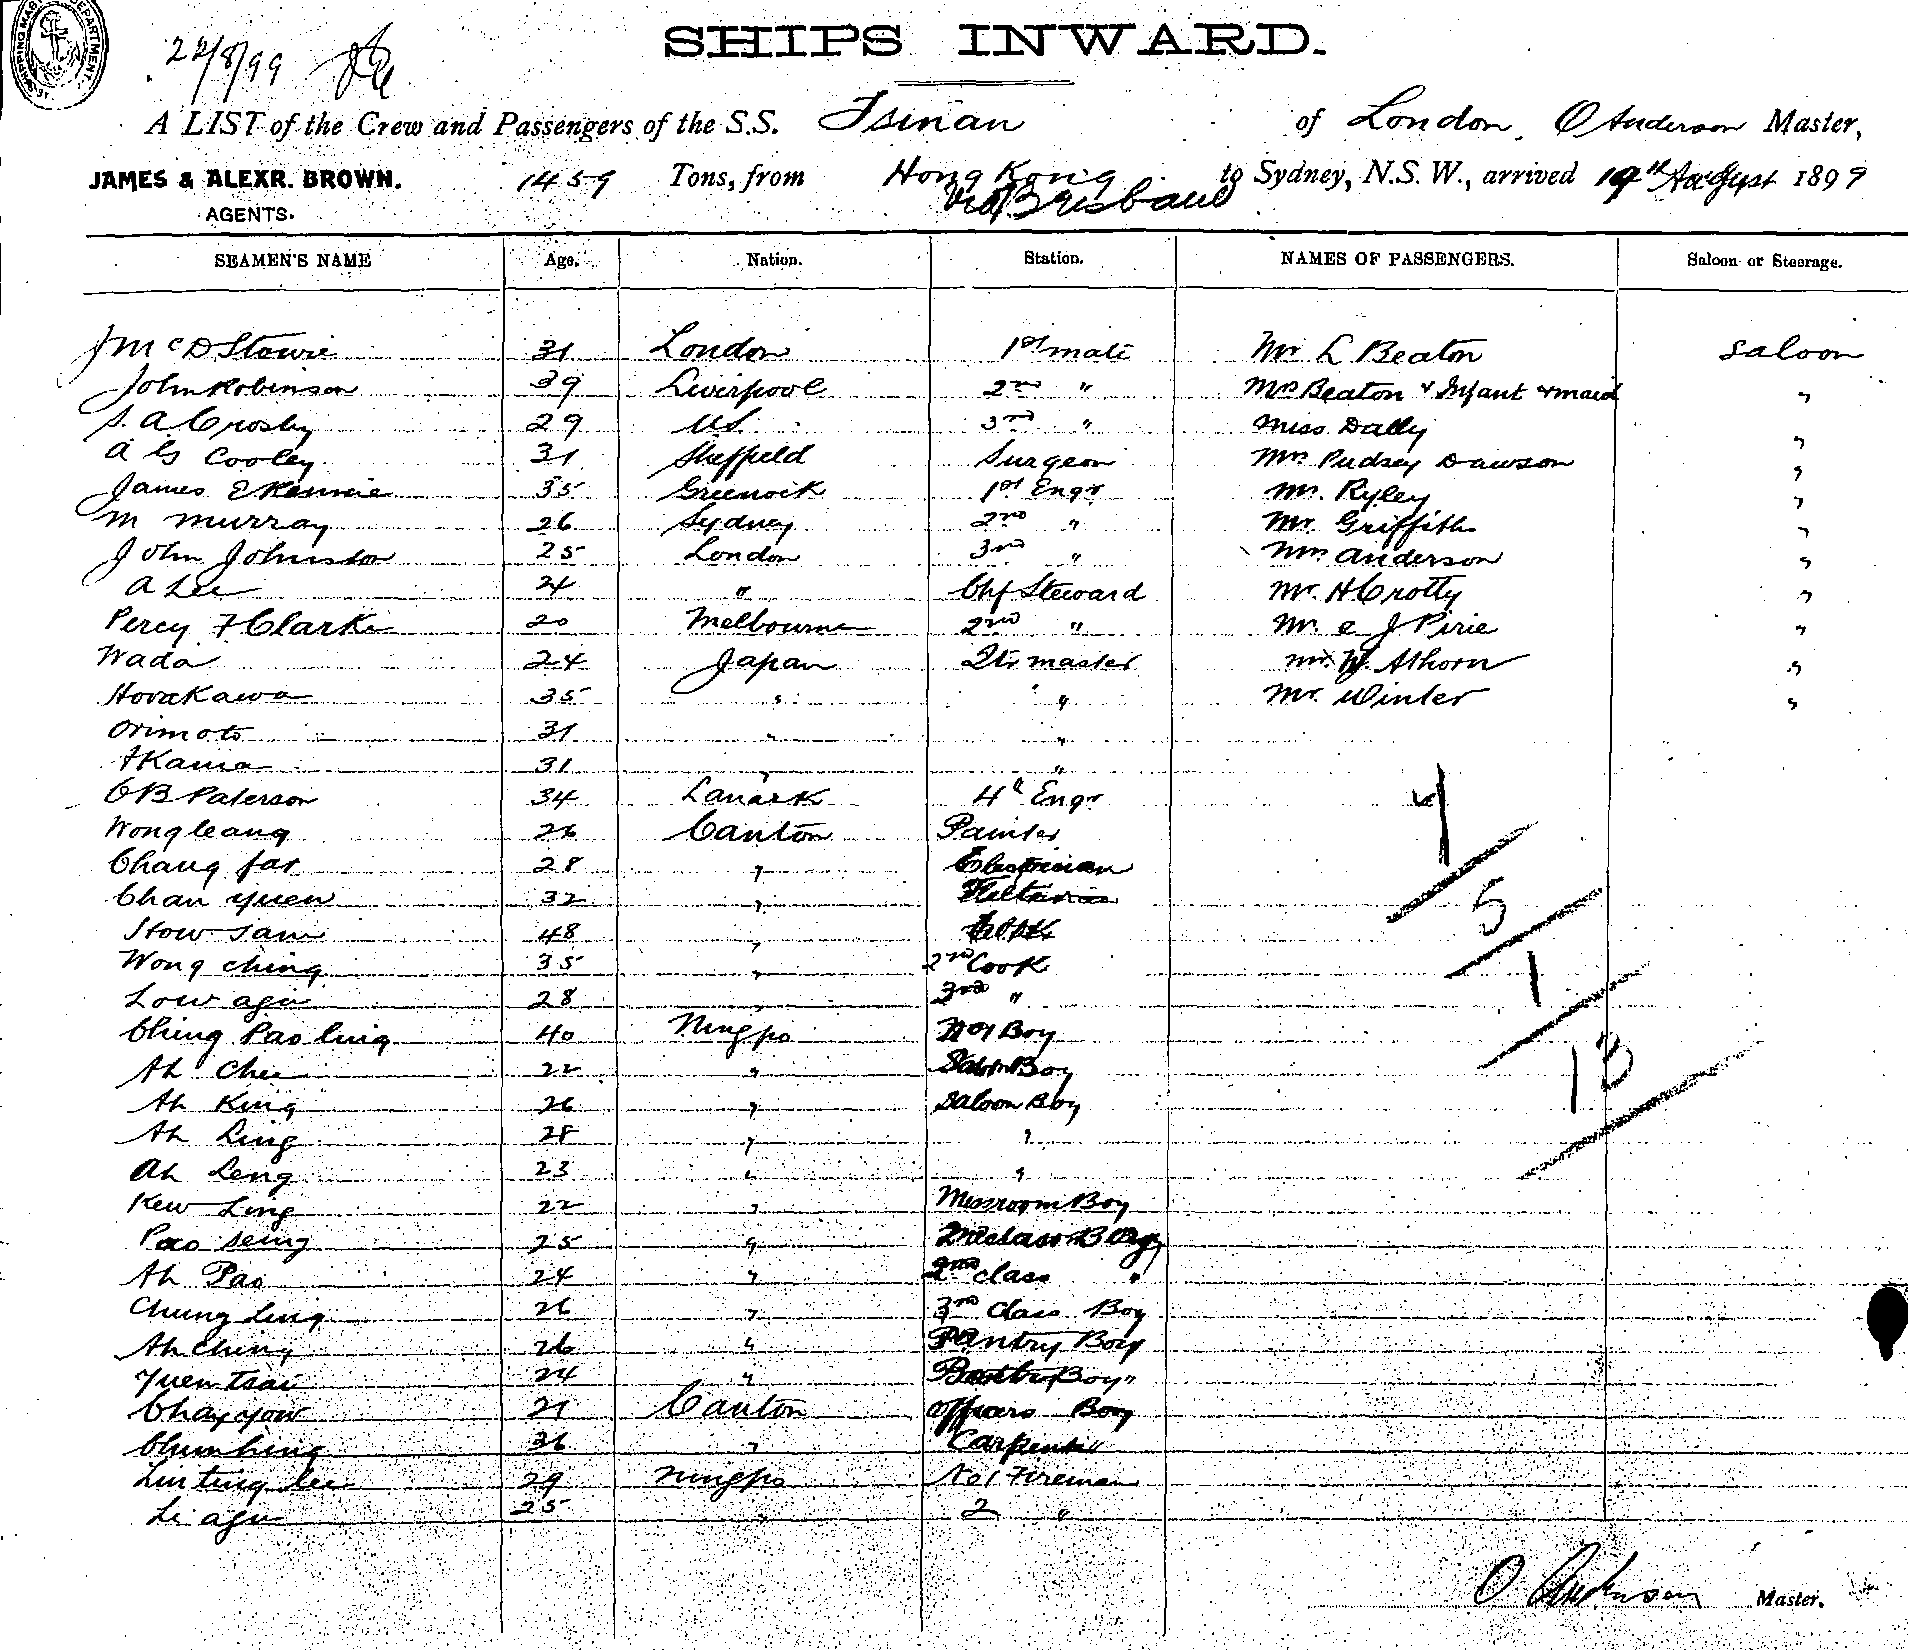 22/8/99
SHIPS INWARD.
A LIST of the Crew and Passengers of the S.S. Tsinan of London, O Anderson Master,
JAMES & ALEXR. BROWN. 1459 Tons, from Hong Kong to Sydney, N.S.W., arrived 19th August 1899
AGENTS. Via Brisbane
SEAMEN'S NAME Age. Nation. Station. NAMES OF PASSENGERS. Saloon or Steerage.
J McD Stowie 31 London 1st mate Mr L Beaton Saloon
John Robinson 39 Liverpool 2nd " Mrs Beaton & Infant & maid "
S. A Crosby 29 US 3rd " Miss Dally "
A G Cooley 31 Sheffield Surgeon Mrs Pudsey Dawson "
James E Rennie 35 Greenock 1st Engr Mr. Ryley "
M Murray 26 Sydney 2nd " Mr Griffith "
John Johnston 25 London 3rd " Mrs Anderson "
A Lee 24 " Chf Steward Mr. H Crotty "
Percy F Clarke 20 Melbourne 2nd " Mr. E J Pirie "
Wada 24 Japan Qtr master Mr. W. Athorn "
Horakawa 35 " " Mr. Winter "
Orimoto 31 " "
31 " "
Paterson 34 Lanark 4th Engr
Wong leang 26 Canton Painter
Chang far 28 "
Chan yuen 32 "
Stow Sam 48 " Cook
Wong ching 35 " 2nd Cook
Low agu 28 " 3rd "
Ching Pao ling 40 Ningpo No 1 Boy
Ah Chee 22 " Saloon Boy
Ah King 26 " Saloon Boy
Ah Ling 28 " "
Ah Leng 23 " "
Kew Ling 22 " Messroom Boy
Pao Seing 25 "
Ah Pao 24 " 2nd class "
Chung Ling 26 " 3rd Class Boy
Ah Ching 26 " Pantry Boy
Yuen tsai 24 " Boy
Chay yow 21 Canton Officers Boy
Chun hing 36 " Carpenter
Lin ting lee 29 Ningpo No 1 Fireman
Li agu 25 " 2 "
4
5
1
13
O Anderson Master.